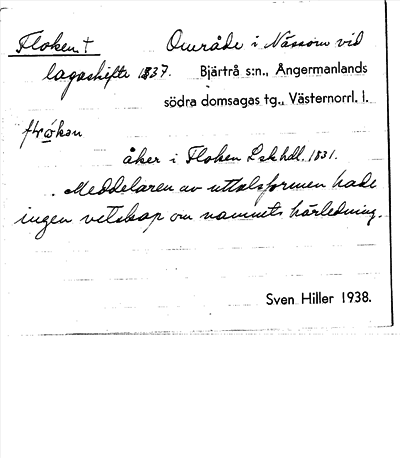 Floken † Område i Nässom vid
lagaskifte 1837. Bjärtrå s:n., Ångermanlands
södra domsagas tg., Västernorrl. l.
åker i Floken Lskhdl. 1831.
Meddelaren av uttalsformen hade
ingen vetskap om namnets härledning.
Sven Hiller 1938.